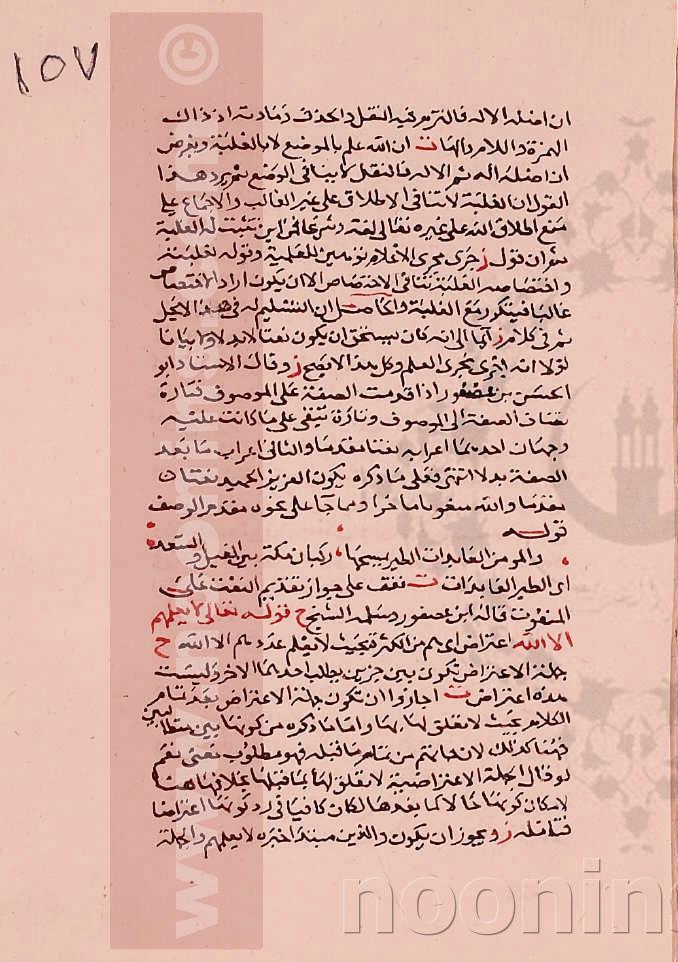 ١٥٧
ان اصله الاله قالتزم فيه النقل والحذف ومادته اذ ذاك
الهمزة واللام والهاء ت ان الله علم بالوضع لا بالغلبة وبفرض
ان اصله اله ثم الاله فالنقل لا ينافي الوضع ثم يرد هذا
القول ان الغلبة لا تنافي الاطلاق على غير الغالب والاجماع على
منع اطلاق الله على غيره تعالى لغة وشرعا فمن اين يثبت له الغلبة
ثم ان قول ز جرى مجرى الاعلام توهين للعلمية وقوله لغلبته
واختصاصه الغلبة تنافي الاختصاص الا ان يكون اراد الاختصاص
غالبا فيتكرر مع الغلبة والحاصل ان التسليم له في هذا الاجل
ثم في كلام ز آيما الى انه كان يستحق ان يكون نعتا لا بدلا ولا بيانا
لولا انه اجرى مجرى العلم وكل هذا لا يصح ز وقال الاستاذ ابو
الحسن بن عصفور اذا قدمت الصفة على الموصوف فتارة
تضاف الصفة الى الموصوف وتارة تبقى على ما كانت عليه
وجهان احدهما اعرابه نعتا مقدما والثاني اعراب ما بعد
الصفة بدلا انتهى فعلى ما ذكره يكون العزيز الحميد نعتان
تقدما والله منعوتا متاخرا ومما جا على نحو تقديم الوصف
قوله
والمومن العايذات الطير يمسحها، ركبان مكة بين الغيل والسعد
اي الطير العايذات ت نقف على جواز تقديم النعت على
المنعوت قاله ابن عصفور وسلمه الشيخ ح قوله تعالى لا يعلمهم
الا الله اعتراض اي هم من الكثرة بحيث لا يعلم عددهم الا الله ح
جملة الاعتراض تكون بين جزين يطلب احدهما الاخر وليست
هذه اعتراض ت اجازوا ان تكون جملة الاعتراض بعد تمام
الكلام بحيث لا تعلق لها بها واما ما ذكره من كونها بين متطالبين
فهنا كذلك لان جاتهم من تمام ما قبله فهو مطلوب نعم
لو قال الجملة الاعتراضية لا تعلق لها بما قبلها بخلافها هنا
لامكان كونها حالا كما بعدها لكان كافيا في رد كونها اعتراضا
فتامله ز ويجوز ان يكون والذين مبتدا خبره لا يعلمهم والجملة
noonin